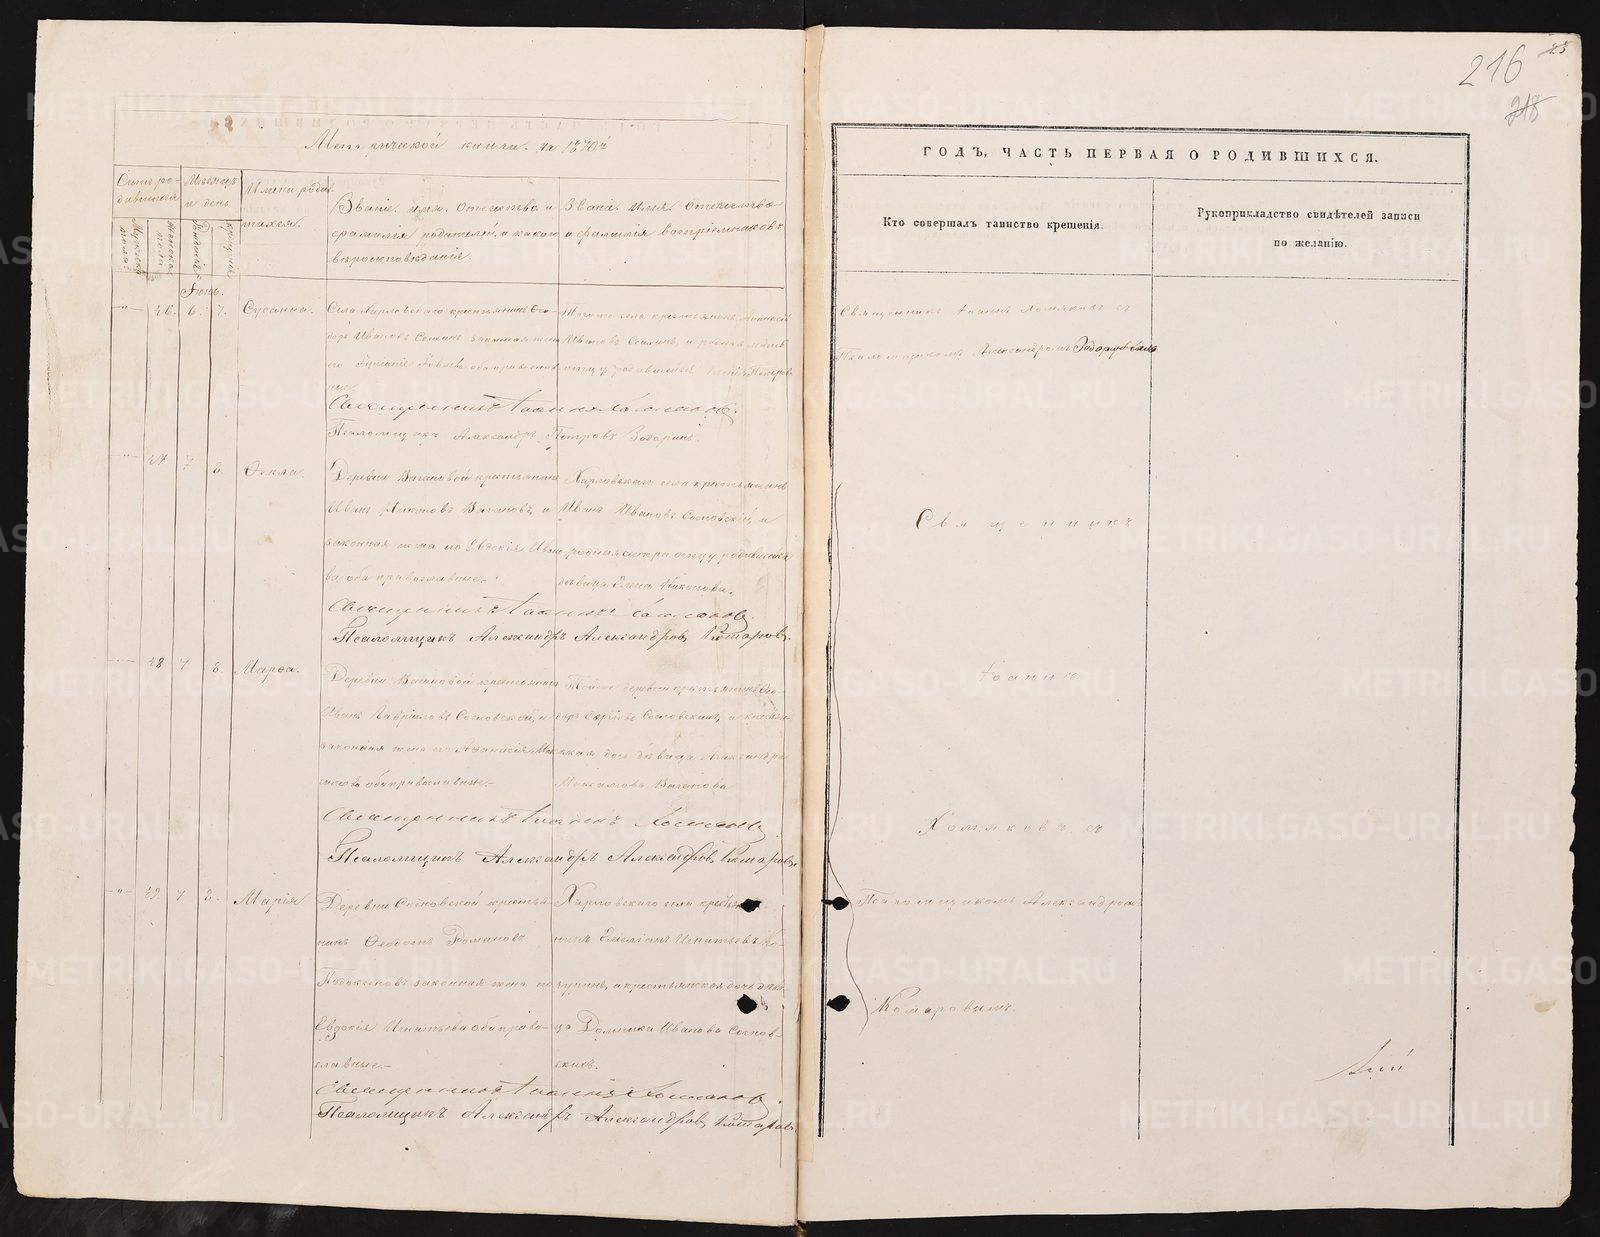 216
218
Метрической книги на 1870й
Счетъ ро-
дившихся
Мѣсяцъ
и день
Имена роди-
вшихся.
Мужеска
пола.
Женска
пола.
Рожденія
Крещенія
Званіе, имя, отчество и
фамилія родителей, и какого
вѣроисповѣданія.
Званіе, имя, отчество
и фамилія воспріемниковъ
Іюнь.
46. 6. 7. Сусанна.
Села Харловскаго крестьянинъ Ѳео-
доръ Ивановъ законная жена
его оба православ-
ные
Того же села крестьянинъ
Ивановъ и родная
отцу родившейся
Священникъ Іоаннъ Хомяковъ.
Псаломщикъ Александръ Петровъ Задоринъ.
47 7 8. Ѳекла.
Деревни Вагановой крестьянинъ
Иванъ Никоновъ Вагановъ, и
законная жена его Евдокія Ивано-
ва оба православные.
Харловскаго села крестьянинъ
Иванъ Ивановъ Сосновскій, и
родная сестра отцу родившейся
дѣвица Елена Никонова.
Священникъ Іоаннъ Хомяковъ.
Псаломщикъ Александръ Александровъ Комаровъ.
48 7 8. Марѳа.
Деревни Вагановой крестьянинъ
Иванъ Гавріиловъ Сосновской, и
законная жена его Аѳанасія Мак-
симова оба православные.
Тойже деревни крестьянинъ Ѳео-
доръ Сергіевъ Сосновскихъ, и крестьян-
ская дочь дѣвица Александра
Максимова Ваганова
Священникъ Іоаннъ Хомяковъ.
Псаломщикъ Александръ Александровъ Комаровъ.
49 7 8. Марія
Деревни Сосновской крестья-
нинъ Ѳеодотъ Романовъ
законная жена его
Евдокія Игнатьева оба право-
славные.
Харловскаго села крестья-
нинъ Емеліанъ Игнатьевъ Ко-
зуринъ, и крестьянская дочь дѣви-
ца Домника Иванова Соснов-
скихъ.
Священникъ Іоаннъ Хомяковъ.
Псаломщикъ Александръ Александровъ Комаровъ.
ГОДЪ, ЧАСТЬ ПЕРВАЯ О РОДИВШИХСЯ.
Кто совершалъ таинство крещенія.
Рукоприкладство свидѣтелей записи
по желанію.
Священникъ Іоаннъ Хомяковъ съ
Псаломщикомъ Александромъ Задоринымъ
Священникъ
Іоаннъ
Хомяковъ съ
Псаломщикомъ Александромъ
Комаровымъ.
METRIKI.GASO-URAL.RU